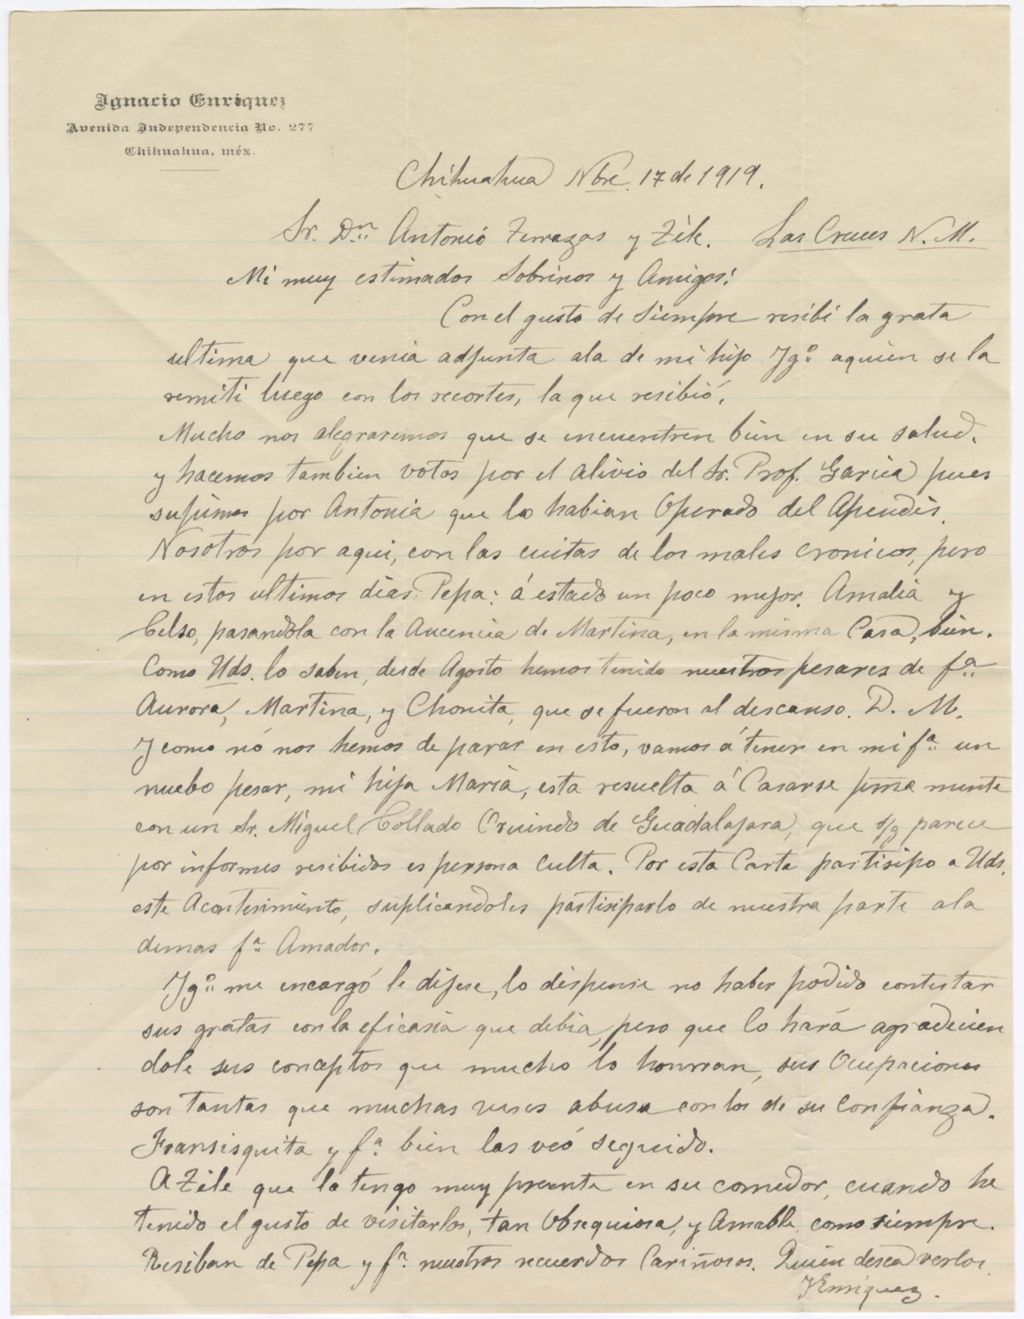 Ignacio Enriquez
Avenida Independencia No. 277
Chihuahua, méx.
Chihuahua Nbre. 17 de 1919.
Sr. Dn. Antonio Terrazas y Zile. Las Cruces N. M.
Mi muy estimados Sobrinos y Amigos:
Con el gusto de siempre resibi la grata
ultima que venia adjunta ala de mi hijo Ygo. aquien se la
remiti luego con los recortes, la que resibió.
Mucho nos alegraremos que se encuentren bien en su salud.
y hacemos tambien votos por el alivio del Sr. Prof. Garcia pues
supimos por Antonia que lo habian Operado del Apendis.
Nosotros por aqui, con las cuitas de los males cronicos, pero
en estos ultimos dias Pepa: á estado un poco mejor. Amalia y
Celso, pasandola con la Aucencia de Martina, en la misma Casa, bien.
Como Uds. lo saben, desde Agosto hemos tenido nuestros pesares de fa.
Aurora, Martina, y Chonita, que se fueron al descanso. D. M.
Y como nó nos hemos de parar en esto, vamos á tener en mi fa. un
nuebo pesar, mi hija Maria, esta resuelta á Casarse
con un Sr. Miguel Collado Oriundo de Guadalajara, que s/g parece
por informes resibidos es persona culta. Por esta Carta partisipo a Uds.
este Acontesimiento, suplicandoles partisiparlo de nuestra parte ala
demas fa. Amador.
Ygo. me encargó le dijese, lo dispense no haber podido contestar
sus gratas con la eficasia que debia, pero que lo hará agradecien
dole sus conceptos que mucho lo honrran, sus Ocupaciones
son tantas que muchas veses abusa con los de su confianza.
Fransisquita y fa. bien las veó seguido.
A Zile que la tengo muy presente en su comedor, cuando he
tenido el gusto de visitarlos, tan Obsequiosa, y Amable como siempre.
Resiban de Pepa y fa. nuestros recuerdos Cariñosos. Quien desea verlos.
YEnriquez.